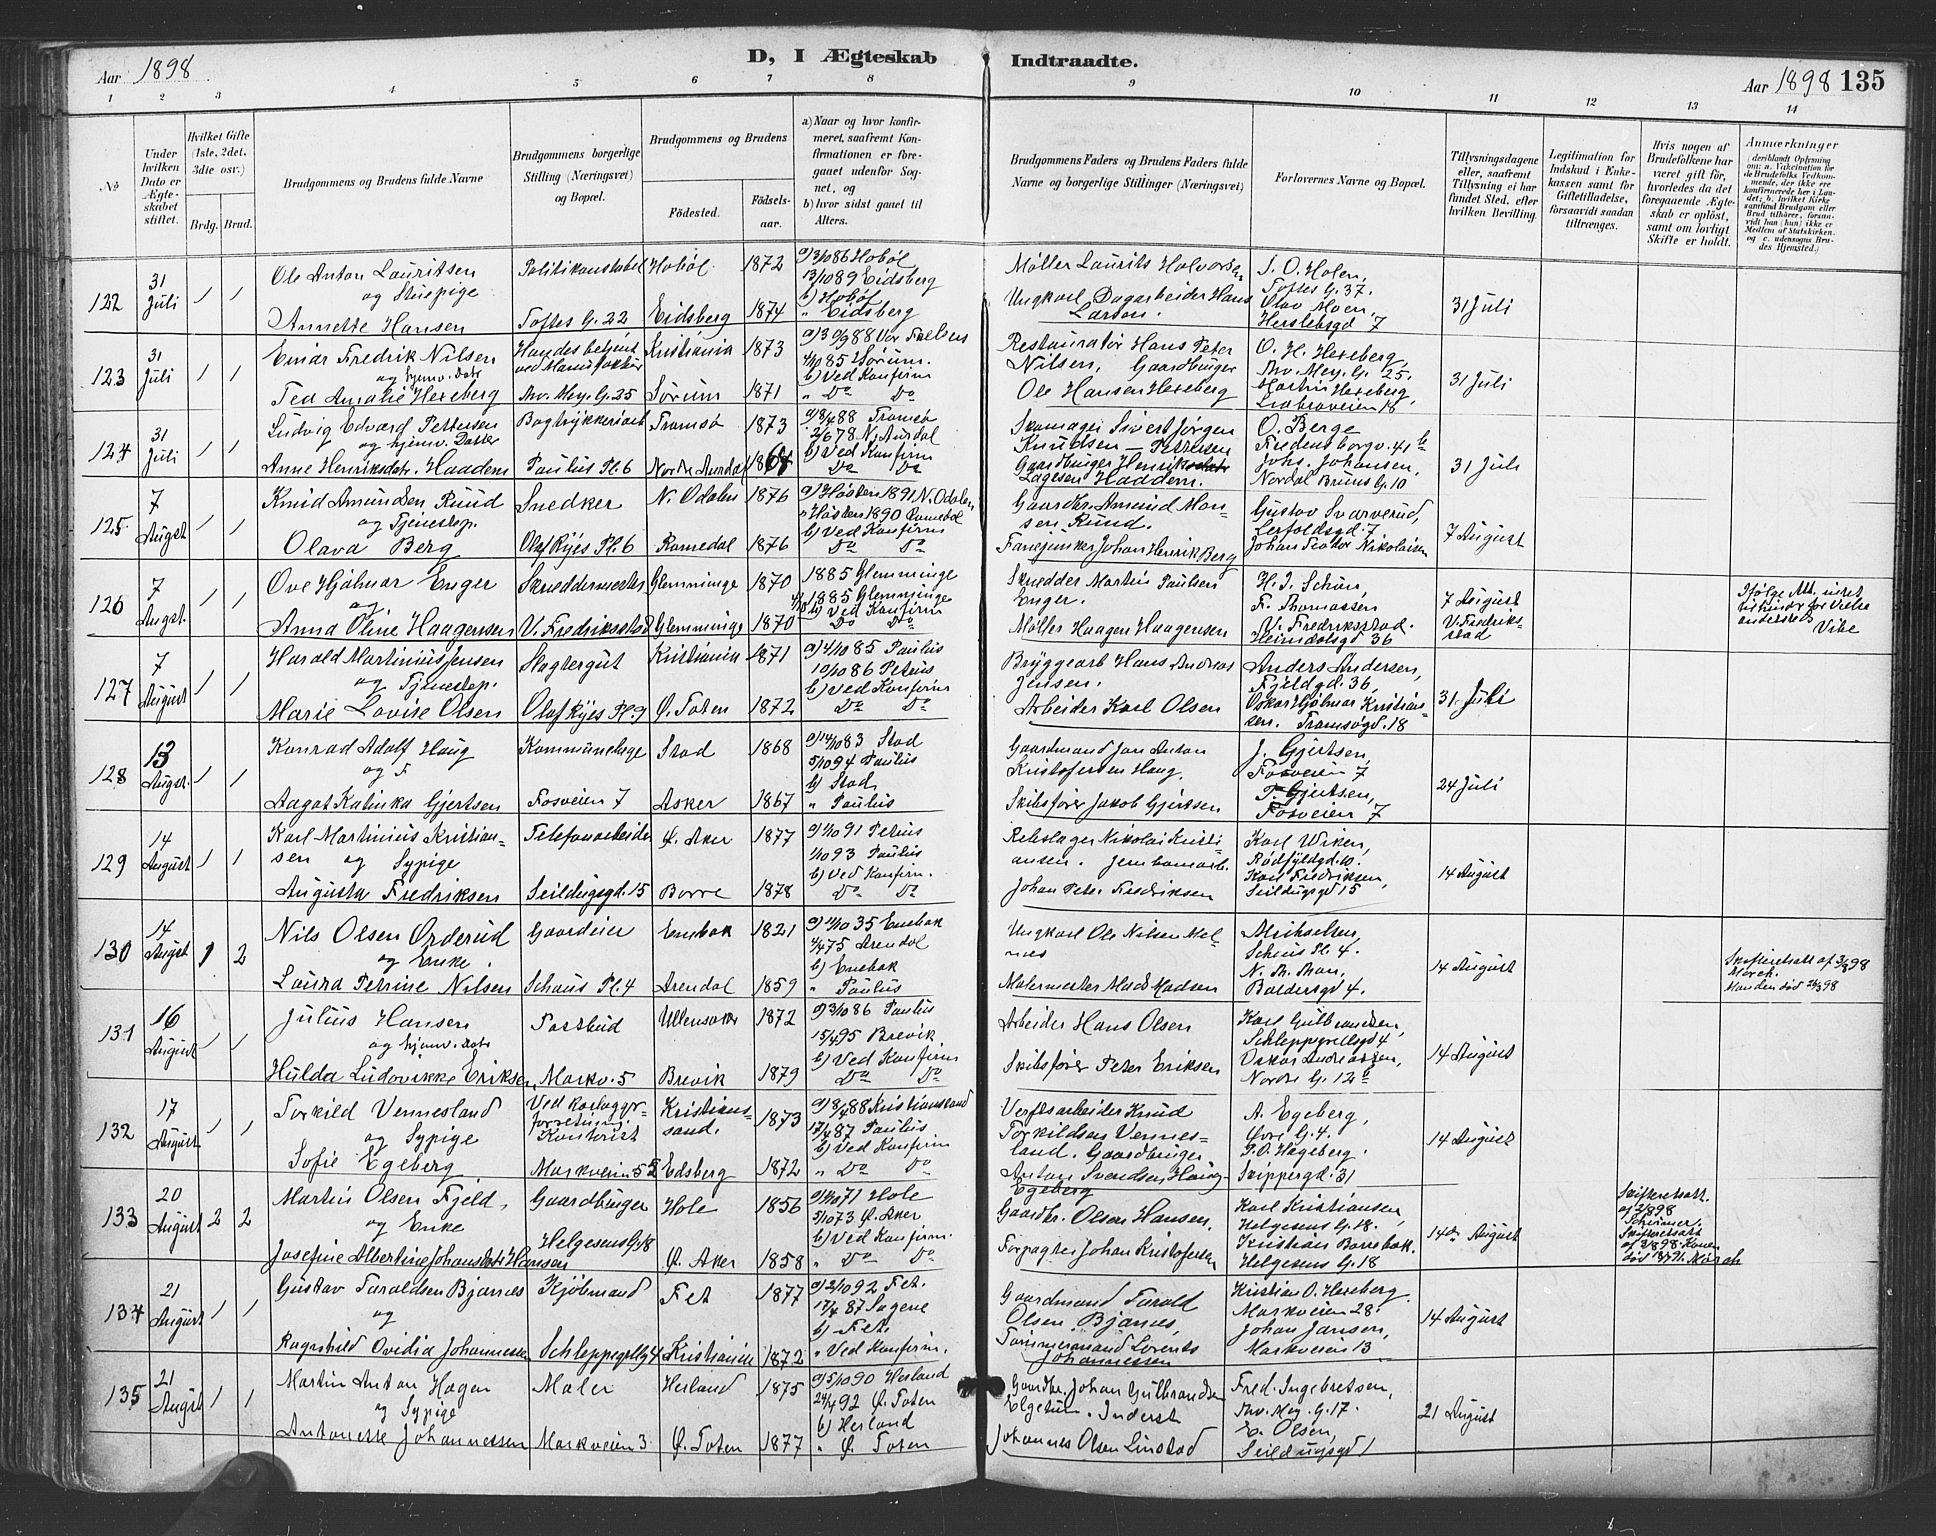 Aar 1898
D, I Ægteskab Indtraadte.
Aar 1898 135
1 2 3 4 5 6 7 8 9 10 11 12 13 14
No
Under hvilken Dato er Ægteskabet stiftet.
Hvilket Gifte (1ste, 2det, 3die osv.)
Brdg. Brud.
Brudgommens og Brudens fulde Navne
Brudgommens borgerlige Stilling (Næringsvei) og Bopæl.
Brudgommens og Brudens
Fødested. Fødselsaar.
a) Naar og hvor konfirmeret, saafremt Konfirmationen er foregaaet udenfor Sognet, og
b) hvor sidst gaaet til Alters.
Brudgommens Faders og Brudens Faders fulde Navne og borgerlige Stillinger (Næringsvei)
Forlovernes Navne og Bopæl.
Tillysningsdagene eller, saafremt Tillysning ei har fundet Sted, efter hvilken Bevilling.
Legitimation for Indskud i Enkekassen samt for Giftetilladelse, forsaavidt saadan tiltrænges.
Hvis nogen af Brudefolkene har været gift før, hvorledes da det foregaaende Ægteskab er opløst, samt om lovligt Skifte er holdt.
Anmærkninger
122 31 Juli 1 1
Ole Anton Lauritsen og Stuepige
Annette Hansen
Politikonstabel
Toftes G. 22
Hobøl 1872
Eidsberg 1874
a) 3/10 86 Hobøl
13/10 89 Eidsberg
b) Hobøl
" Eidsberg
Møller Laurits Halvorsen
Ungkarl Dagarbeider Hans Larsen.
S. O. Holen,
Toftes G. 37.
Olav Moen,
Herslebsgd 7
31 Juli
123 31 Juli 1 1
Einar Fredrik Nilsen og hjemv. Datr
Tea Amalie Hexeberg
Thv. Mey. G. 25
Kristiania 1873
Sørum 1871
a) 30/9 88 Vor Frelsers
4/10 85 Sørum.
b) Ved Konfirm
" Do Do
Restauratør Hans Peter Nilsen, Gaardbruger
Ole Hansen Hexeberg
O. H. Hexeberg,
Thv. Mey. G. 25.
Martin Hexeberg,
31 Juli
124 31 Juli 1 1
Ludvig Edvard Pettersen og hjemv. Datter
Anne Henriksdatr. Haadem
Bogtrykkeriarb
Paulus Pl. 6
Tromsø 1873
Nordre Aurdal
a) 8/4 88 Tromsø
2/6 78 N. Aurdal
b) Ved Konfirm
Do Do
Skomager Sivert Jørgen Knudsen – Pettersen
Gaardbruger Henrik Lagesen Haadem.
O. Berge
Fredensborgv. 41 b
Johs. Johansen,
Nordal Bruns G. 10
31 Juli
125 7 August 1 1
Knud Amundsen Ruud og Tjenestep.
Olava Berg
Snedker
Olaf Ryes Pl. 6
N. Odalen 1876
Romedal 1876
a) Høsten 1891 N. Odalen
" Høsten 1890 Romedal
b) Ved Konfirm
Do Do
Gaardbr. Amund Hansen Ruud.
Fanejunker Johan Henrik Berg
Gustav Svarverud,
Johan Teodor Nikolaisen
7 August
126 7 Augst. 1 1
Ove Hjalmar Enger og
Anna Oline Haagensen
Skreddermester
V. Fredriksstad
Glemminge 1870
Glemminge 1870
1885 Glemminge
1885 Glemminge
b) Ved Konfirm
Do Do
Skredder Martin Paulsen Enger.
Møller Haagen Haagensen
H. J. Schøn,
F. Thomassen
V. Fredriksstad.
Heimdalsgd 36
7 August
V. Fredriksstad
Ifølge Att. intet til hinder for Vielse andersteds
Vibe
127 7 August 1 1
Harald Martinius Jensen og Tjenestep.
Marie Lovise Olsen
Slagtergut
Olaf Ryes Pl. 9
Kristiania 1871
Ø. Toten 1872
a) 4/10 85 Paulus
10/10 86 Petrus
b) Ved Konfirm
Do Do
Bryggearb Hans Andreas Jensen.
Arbeider Karl Olsen
Anders Andersen,
Fjeldgd. 36,
Oskar Hjalmar Kristiansen. Tromsøgd. 18
31 Juli
128 13 August. 1 1
Konrad Adolf Haug og F
Aagot Katinka Gjertsen
Kommunelæge
Fosveien 7
Stod 1868
Asker 1867
a) 14/10 83 Stod
5/10 94 Paulus
b) Stod,
" Paulus
Gaardmand Jon Anton Kristofersen Haug.
Skibsfører Jakob Gjertsen
J. Gjertsen,
Fosveien 7
T. Gjertsen,
Fosveien 7
24 Juli
129 14 August 1 1
Karl Martinius Kristiansen og Sypige
Augusta Fredriksen
Telefonarbeider
Seildugsgd. 15
Ø. Aker 1877
Borre 1878
a) 4/10 91 Petrus
1/10 93 Paulus
b) Ved Konfirm.
Do Do
Rebslager Nikolai Kristiansen. Jernbanearb.
Johan Peter Fredriksen
Karl Wiken,
Rødfyldgd. 10.
Karl Fredriksen,
Seildugsgd 15
14 August
130 14 August 1 2
Nils Olsen Orderud og Enke.
Laura Petrine Nilsen
Gaardeier
Schous Pl. 4
Enebak 1821
Arendal 1859
a) 11/10 35 Enebak
4/4 75 Arendal
b) Enebak
" Paulus
Ungkarl Ole Nilsen Melnes
Malermester Mads Madsen
Michaelsen
Schous Pl. 4.
N. Th. Thon,
Baldersgd 4.
14 August
Skifteretsatt af 3/8 98 Morch.
Manden død
131 16 August 1 1
Julius Hansen og hjemv. Datr
Hulda Ludovikke Eriksen
Postbud
Markv. 5
Ullensaker 1872
Brevik 1879
a) 3/10 86 Paulus
15/4 95 Brevik
b) Ved Konfirm
Do Do
Arbeider Hans Olsen
Skibsfører Peter Eriksen
Karl Gulbrandsen,
Schleppegrellsgd 4
Oskar Andreassen,
Nordre G. 12 b
14 August
132 17 August 1 1
Torkild Vennesland og Sypige
Sofie Egeberg
Kontorist
Markveien 52
Kristianssand, 1873
Edsberg 1872
a) 8/4 88 Kristianssand
17/4 87 Paulus
b) Ved Konfirm
" Do Do
Verftsarbeider Knud Torkildsen Vennesland. Gaardbruger
Anton Svendsen Haug-Egeberg
A. Egeberg,
Øvre G. 4.
P. O. Hageberg.
Skippergd. 31
14 August
133 20 August 2 2
Martin Olsen Fjeld, og Enke
Josefine Albertine Johansdatr Hansen
Gaardbruger
Helgesens G. 18
Hole 1856
Ø. Aker 1858
a) 1/10 71 Hole
5/10 73 Ø. Aker
b) Ved Konfirm.
Do Do
Gaardbr. Olsen Hansen,
Forpagter Johan Kristofersen
Karl Kristiansen,
Helgesens G. 18.
Kristian Borrebæk.
Helgesens G. 18
14de August
Skifteretsatt. af 2/8 98
Skifteretsatt af 3/8 98. Konen død Morch
134 21 August 1 1
Gustav Taraldsen Bjanes og
Ragnhild Ovidia Johannessen
Kjøbmand
Schleppegrellsg 4
Fet 1877
Kristiania 1872
a) 2/10 92 Fet.
17/4 87 Sagene
b) Fet.
" Ved Konfirm.
Gaardmand Tarald Olsen Bjanes,
Tømmermand Lorents Johannessen
Kristian O. Hexeberg.
Markveien 28.
Johan Jansen,
Markveien 13
14 August
135 21 August 1 1
Martin Anton Hagen og Sypige
Antonette Johannessen
Maler
Markveien 3
Herland 1875
Ø. Toten 1877
a) 5/10 90 Herland
24/4 92 Ø. Toten
b) Herland
" Ø. Toten
Gaardbr. Johan Gulbrandsen Elgetun. Inderst
Johannes Olsen Linstad
Fred. Ingebretsen,
Thv. Mey. G. 17.
E. Olsen,
Seildugsgd 1
21 August